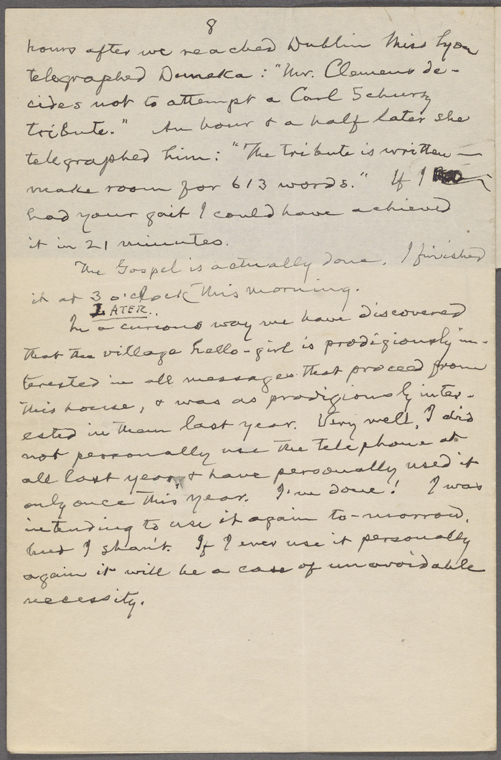 8
hours after we reached Dublin Miss Lyon
telegraphed Duneka: "Mr. Clemens de-
cides not to attempt a Carl Schurz
tribute." An hour & a half later she
telegraphed him: "The tribute is written—
make room for 613 words." If I
had your gait I could have achieved
it in 21 minutes.
The Gospel is actually done. I finished
it at 3 o'clock this morning.
LATER.
In a curious way we have discovered
that the village hello-girl is prodigiously in-
terested in all messages that proceed from
this house, & was as prodigiously inter-
ested in them last year. Very well, I did
not personally use the telephone at
all last year, & have personally used it
only once this year. I'm done! I was
intending to use it again to-morrow,
but I shan't. If I ever use it personally
again it will be a case of unavoidable
necessity.